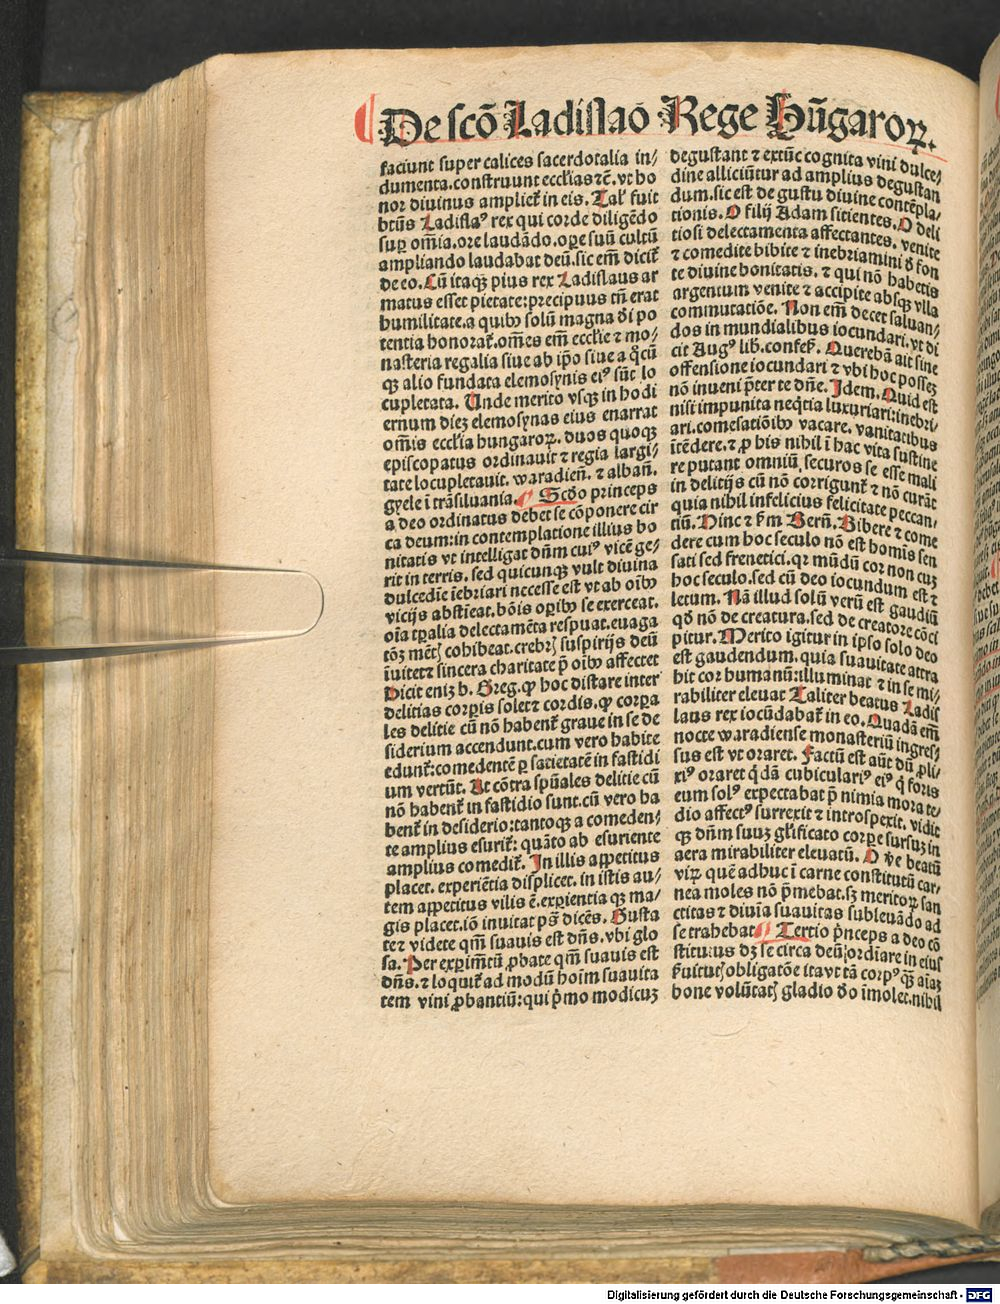 De scō Ladislao Rege Hūgaroꝝ.
faciunt super calices sacerdotalia in/
dumenta.construunt ecclīas ⁊ c̄.vt ho
nor diuinus ampliet᷑ in eis. Tal' fuit
btūs Ladislaꝰ rex qui corde diligēdo
suꝑ om̄ia.ore laudādo.oꝑe suū cultū
ampliando laudabat deū.sic em̄ dicit᷑
de eo.Cū itaqꝫ pius rex Ladislaus ar
matus esset pietate:precipuus tn̄ erat
humilitate.a quibꝰ solū magna d̓i po
tentia honorat᷑.om̄es em̄ ecclīe ⁊ mo/
nasteria regalia siue ab ip̄o siue a q̊cū
qꝫ alio fundata elemosynis eiꝰ sūt lo
cupletata. Unde merito vsqꝫ in hodi
ernum dieꝫ elemosynas eius enarrat
om̄is ecclīa hungaroꝝ. duos quoqꝫ
episcopatus ordinauit ⁊ regia largi/
tate locupletauit. waradieñ. ⁊ albañ.
gyele ī trāsiluania. ¶ Scd̓o princeps
a deo ordinatus debet se cōponere cir
ca deum:in contemplatione illius bo
nitatis vt intelligat dn̄m cuiꝰ vicē ge/
rit in terris. sed quicunqꝫ vult diuina
dulcedīe īebriari necesse est vt ab oībꝰ
vicijs abstīeat.bōis oꝑibꝰ se exerceat.
oīa tꝑalia delectamēta respuat.euaga
tōꝫ mēt᷑ cohibeat.crebr᷑ suspirijs deū
īuitet⁊ sincera charitate p̄ oībꝰ affectet
Dicit eniꝫ b. Greg.ꝙ hoc distare inter
delitias corꝑis solet⁊ cordis.ꝙ corꝑa
les delitie cū nō habent᷑ graue in se de
siderium accendunt.cum vero habite
edunt᷑:comedentē ꝑ satietatē in fastidi
um vertūt. At cōtra sp̄uales delitie cū
nō habent᷑ in fastidio sunt.cū vero ha
bent᷑ in desiderio:tantoqꝫ a comeden/
te amplius esurit᷑: quāto ab esuriente
amplius comedit᷑. In illis appetitus
placet. experiētia displicet. in istis au/
tem appetitus vilis ē.exꝑientia qꝫ ma/
gis placet.iō inuitat ps̄ dicēs. Gusta
te⁊ videte qm̄ suauis est dn̄s.vbi glo
sa. Per exꝑimētū ꝓbate qm̄ suauis est
dn̄s.⁊ loquit᷑ ad modū hoīm suauita
tem vini ꝓbantiū:qui p̄mo modicuꝫ
degustant ⁊ extūc cognita vini dulce/
dine alliciūtur ad amplius degustan
dum.sic est de gustu diuine contēpla/
tionis. O filij Adam sitientes. O deli
tiosi delectamenta affectantes. venite
⁊ comedite bibite ⁊ inebriamini d̓ fon
te diuine bonitatis. ⁊ qui nō habetis
argentum venite ⁊ accipite absqꝫ vlla
commutatiōe. Non em̄ decet saluan/
dos in mundialibus iocundari.vt di
cit Augꝰ lib.confes̄. Querebā ait sine
offensione iocundari ⁊ vbi hoc posseꝫ
nō inueni p̄ter te dn̄e. Idem. Quid est
nisi impunita neq̄tia luxuriari:inebri/
ari.comesatiōibꝰ vacare. vanitatibus
ītēdere.⁊ ꝓ his nihil ī hac vita sustine
re putant omniū securos se esse mali
in delitijs cū nō corrigunt᷑ ⁊ nō curāt
quia nihil infelicius felicitate peccan/
tiū. Hinc ⁊ s̄m Berñ. Bibere ⁊ come
dere cum hoc seculo nō est homīs sen
sati sed frenetici.qr mūdū cor non cuꝫ
hoc seculo.sed cū deo iocundum est ⁊
letum. Nā illud solū verū est gaudiū
qd̓ nō de creatura.sed de creatore cōci
pitur. Merito igitur in ipso solo deo
est gaudendum. quia suauitate attra
hit cor humanū:illuminat ⁊ in se mi/
rabiliter eleuat Taliter beatus Ladis
laus rex iocūdabat᷑ in eo. Quadā em̄
nocte waradiense monasteriū ingres/
sus est vt oraret. Factū est aūt dū ꝓli/
xiꝰ oraret q̓dā cubiculariꝰ eiꝰ q̓ foris
eum solꝰ expectabat p̄ nimia mora te/
dio affectꝰ surrexit ⁊ introspexit. vidit
qꝫ dn̄m suuꝫ gl̄ificato corꝑe sursuꝫ in
aera mirabiliter eleuatū. O v̄e beatū
viꝝ quē adhuc ī carne constitutū car/
nea moles nō p̄mebat.sꝫ meritoꝝ san
ctitas ⁊ diuīa suauitas subleuādo ad
se trahebat ¶ Tertio p̄nceps a deo cō
stitutus dꝫ se circa deū ordiare in eius
s̄uitut᷑ obligatōe itavt tā corpꝰ qꝫ aīaꝫ
bone volūtat᷑ gladio d̓o īmolet.nihil
Digitalisierung gefördert durch die Deutsche Forschungsgemeinschaft - DFG